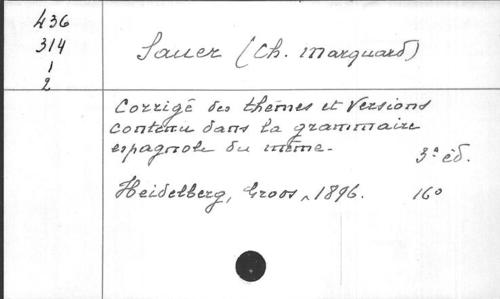 436
314
1
2
Sauer (Ch. Marquard)
Corrigé des thèmes et versions
contenu dans la grammaire
espagnole du même.
3e éd.
Heidelberg, Groos, 1896. 16o